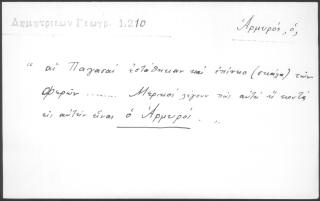 Δημητριέων Γεωγρ. 1.210
Ἁρμυρός, ὁ,
" αἱ Παγασαὶ ἐστάθηκαν καὶ ἐπίνειο (σκάλα) τῶν
Φερῶν ........ Μερικοὶ λέγουν πὼς αὐτὰ ἢ κοντὰ
εἰς αὐτὰ εἶναι ὁ Ἁρμυρός. "